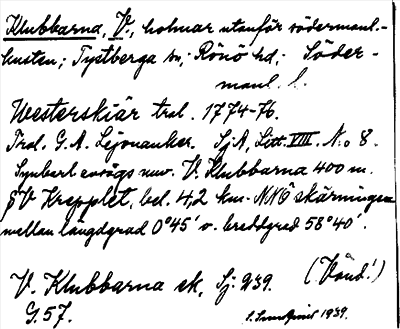 Klubbarna, V., holmar utanför södermanl.-
kusten; Tystberga sn; Rönö hd,; Söder-
manl. l.
Westerskiär trol. 1774-76.
Trol. G. A. Lejonanker. SjA, Litt. VIII. N:o 8.
Synbarl. avvägs nuv. V. Klubbarna 400 m.
V Krepplet, bel. 4,2 km NNÖ skärningen
mellan längdgrad 0°45' o. breddgrad 58°40'.
V. Klubbarna ek. Sj: 239. (Vänd!)
G. 57.
1939.